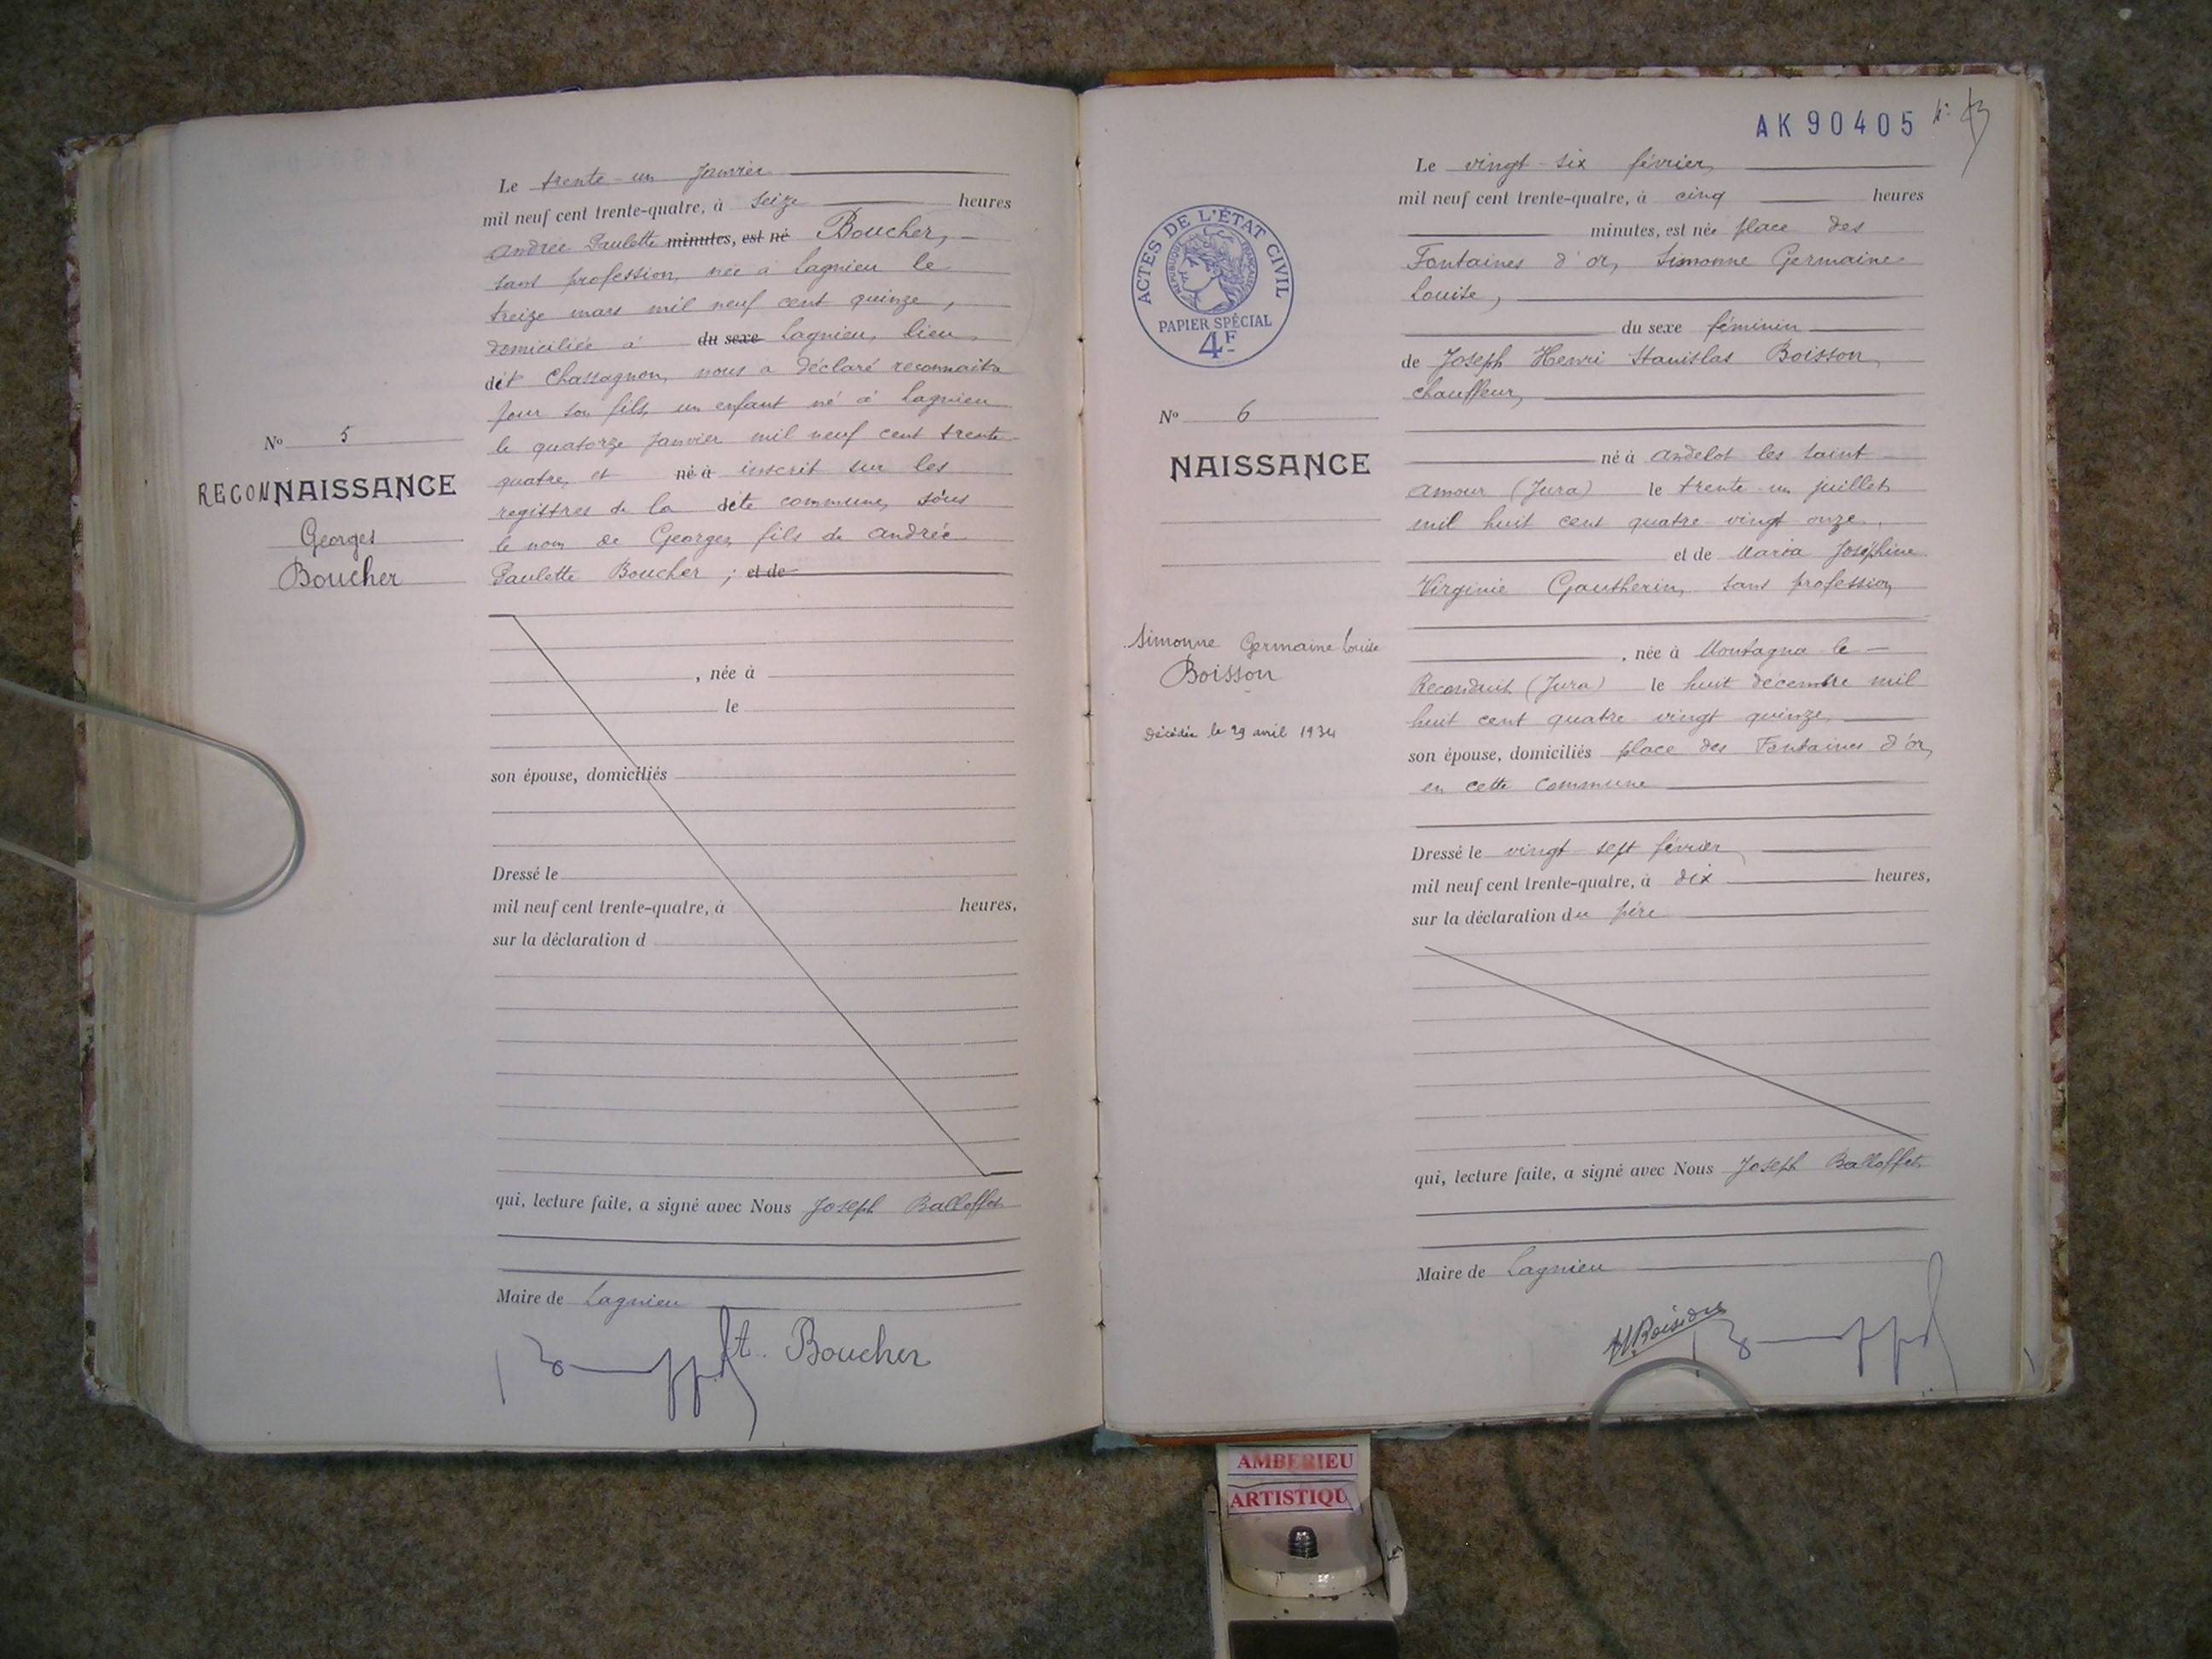 Le trente-un Janvier
mil neuf cent trente-quatre, à seize heures
Andrée Paulette minutes, est né Boucher,
sans profession, née à Lagnieu le
treize mars mil neuf cent quinze,
domiciliée à du sexe Lagnieu, lieu
dit Chassagnon, nous a déclaré reconnaitre
pour son fils, un enfant né à Lagnieu
le quatorze Janvier mil neuf cent trente
quatre, et né à inscrit sur les
registres de la dite commune, sous
le nom de Georges, fils de Andrée
Paulette Boucher ; et de
No 5
RECONNAISSANCE
Georges
Boucher
, née à
le
son épouse, domiciliés
Dressé le
mil neuf cent trente-quatre, à heures,
sur la déclaration d
qui, lecture faite, a signé avec Nous Joseph Balloffet
Maire de Lagnieu
A. Boucher
AK90405
Le vingt-six février,
mil neuf cent trente-quatre, à cinq heures
minutes, est née place des
Fontaines d'or, Simonne Germaine
Louise,
du sexe féminin
de Joseph Henri Stanislas Boisson,
chauffeur,
né à Andelot les Saint
Amour (Jura) le trente-un juillet
mil huit cent quatre-vingt onze,
et de Maria Joséphine
Virginie Gautherin, sans profession,
, née à Montagna le
Reconduit (Jura) le huit décembre mil
huit cent quatre-vingt quinze,
son épouse, domiciliés place des Fontaines d'or,
en cette commune
Dressé le vingt-sept février
mil neuf cent trente-quatre, à dix heures,
sur la déclaration du père
qui, lecture faite, a signé avec Nous Joseph Balloffet,
Maire de Lagnieu
ACTES DE L'ÉTAT CIVIL
RÉPUBLIQUE FRANÇAISE
PAPIER SPÉCIAL
4F
No 6
NAISSANCE
Simonne Germaine Louise
Boisson
Décédée le 29 avril 1934
H. Boisson
AMBERIEU
ARTISTIQU